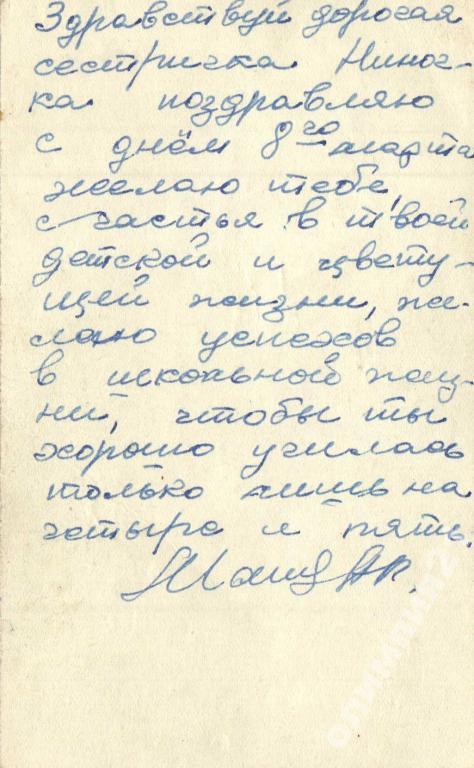 Здравствуй дорогая
сестричка Ниноч-
ка поздравляю
с днём 8го марта
желаю тебе,
счастья в твоей
детской и цвету-
щей жизни, же-
лаю успехов
в школьной жиз-
ни, чтобы ты
хорошо училась
только лишь на
четыре и пять.
олимпия2